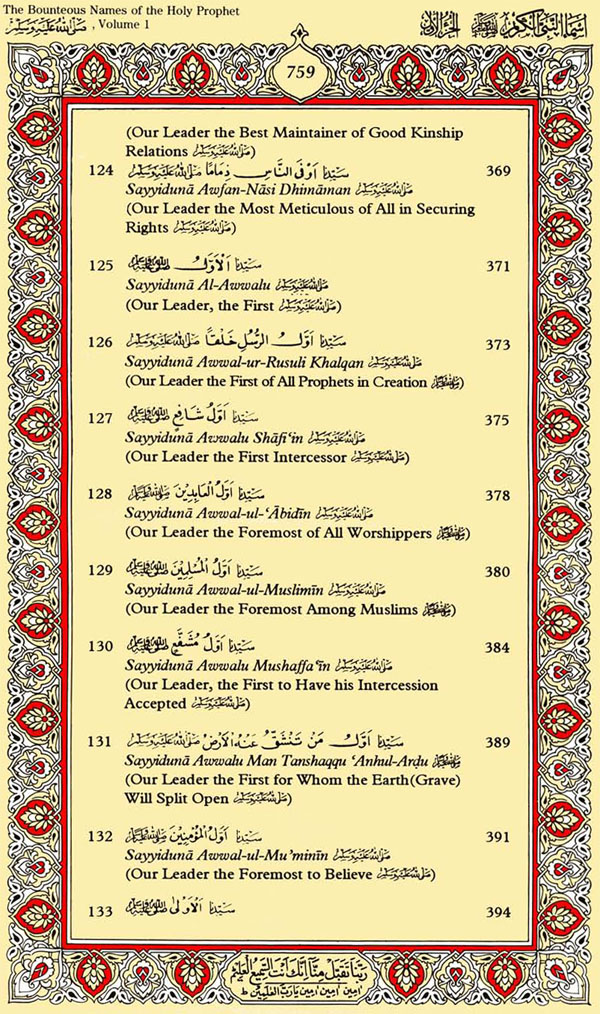 The Bounteous Names of the Holy Prophet
ﷺ, Volume 1
اسماء النبي الكريم ﷺ الجزء الاول
759
(Our Leader the Best Maintainer of Good Kinship
Relations ﷺ)
124 سَيِّدُنَا اَوْفَى النَّاسِ ذِمَامًا ﷺ 369
Sayyidunā Awfan-Nāsi Dhimāman ﷺ
(Our Leader the Most Meticulous of All in Securing
Rights ﷺ)
125 سَيِّدُنَا اَلْاَوَّلُ ﷺ 371
Sayyidunā Al-Awwalu ﷺ
(Our Leader, the First ﷺ)
126 سَيِّدُنَا اَوَّلُ الرُّسُلِ خَلْقًا ﷺ 373
Sayyidunā Awwal-ur-Rusuli Khalqan ﷺ
(Our Leader the First of All Prophets in Creation ﷺ)
127 سَيِّدُنَا اَوَّلُ شَافِعٍ ﷺ 375
Sayyidunā Awwalu Shāfi‘in ﷺ
(Our Leader the First Intercessor ﷺ)
128 سَيِّدُنَا اَوَّلُ الْعَابِدِيْنَ ﷺ 378
Sayyidunā Awwal-ul-‘Ābidīn ﷺ
(Our Leader the Foremost of All Worshippers ﷺ)
129 سَيِّدُنَا اَوَّلُ الْمُسْلِمِيْنَ ﷺ 380
Sayyidunā Awwal-ul-Muslimīn ﷺ
(Our Leader the Foremost Among Muslims ﷺ)
130 سَيِّدُنَا اَوَّلُ مُشَفَّعٍ ﷺ 384
Sayyidunā Awwalu Mushaffa‘īn ﷺ
(Our Leader, the First to Have his Intercession
Accepted ﷺ)
131 سَيِّدُنَا اَوَّلُ مَنْ تَنْشَقُّ عَنْهُ الْاَرْضُ ﷺ 389
Sayyidunā Awwalu Man Tanshaqqu ‘Anhul-Arḍu ﷺ
(Our Leader the First for Whom the Earth(Grave)
Will Split Open ﷺ)
132 سَيِّدُنَا اَوَّلُ الْمُؤْمِنِيْنَ ﷺ 391
Sayyidunā Awwal-ul-Mu’minīn ﷺ
(Our Leader the Foremost to Believe ﷺ)
133 سَيِّدُنَا اَلْاَوْلٰى ﷺ 394
رَبَّنَا تَقَبَّلْ مِنَّا اِنَّكَ اَنْتَ السَّمِيْعُ الْعَلِيْمُ
اٰمين اٰمين اٰمين يَا رَبَّ الْعٰلَمِيْنَ ط